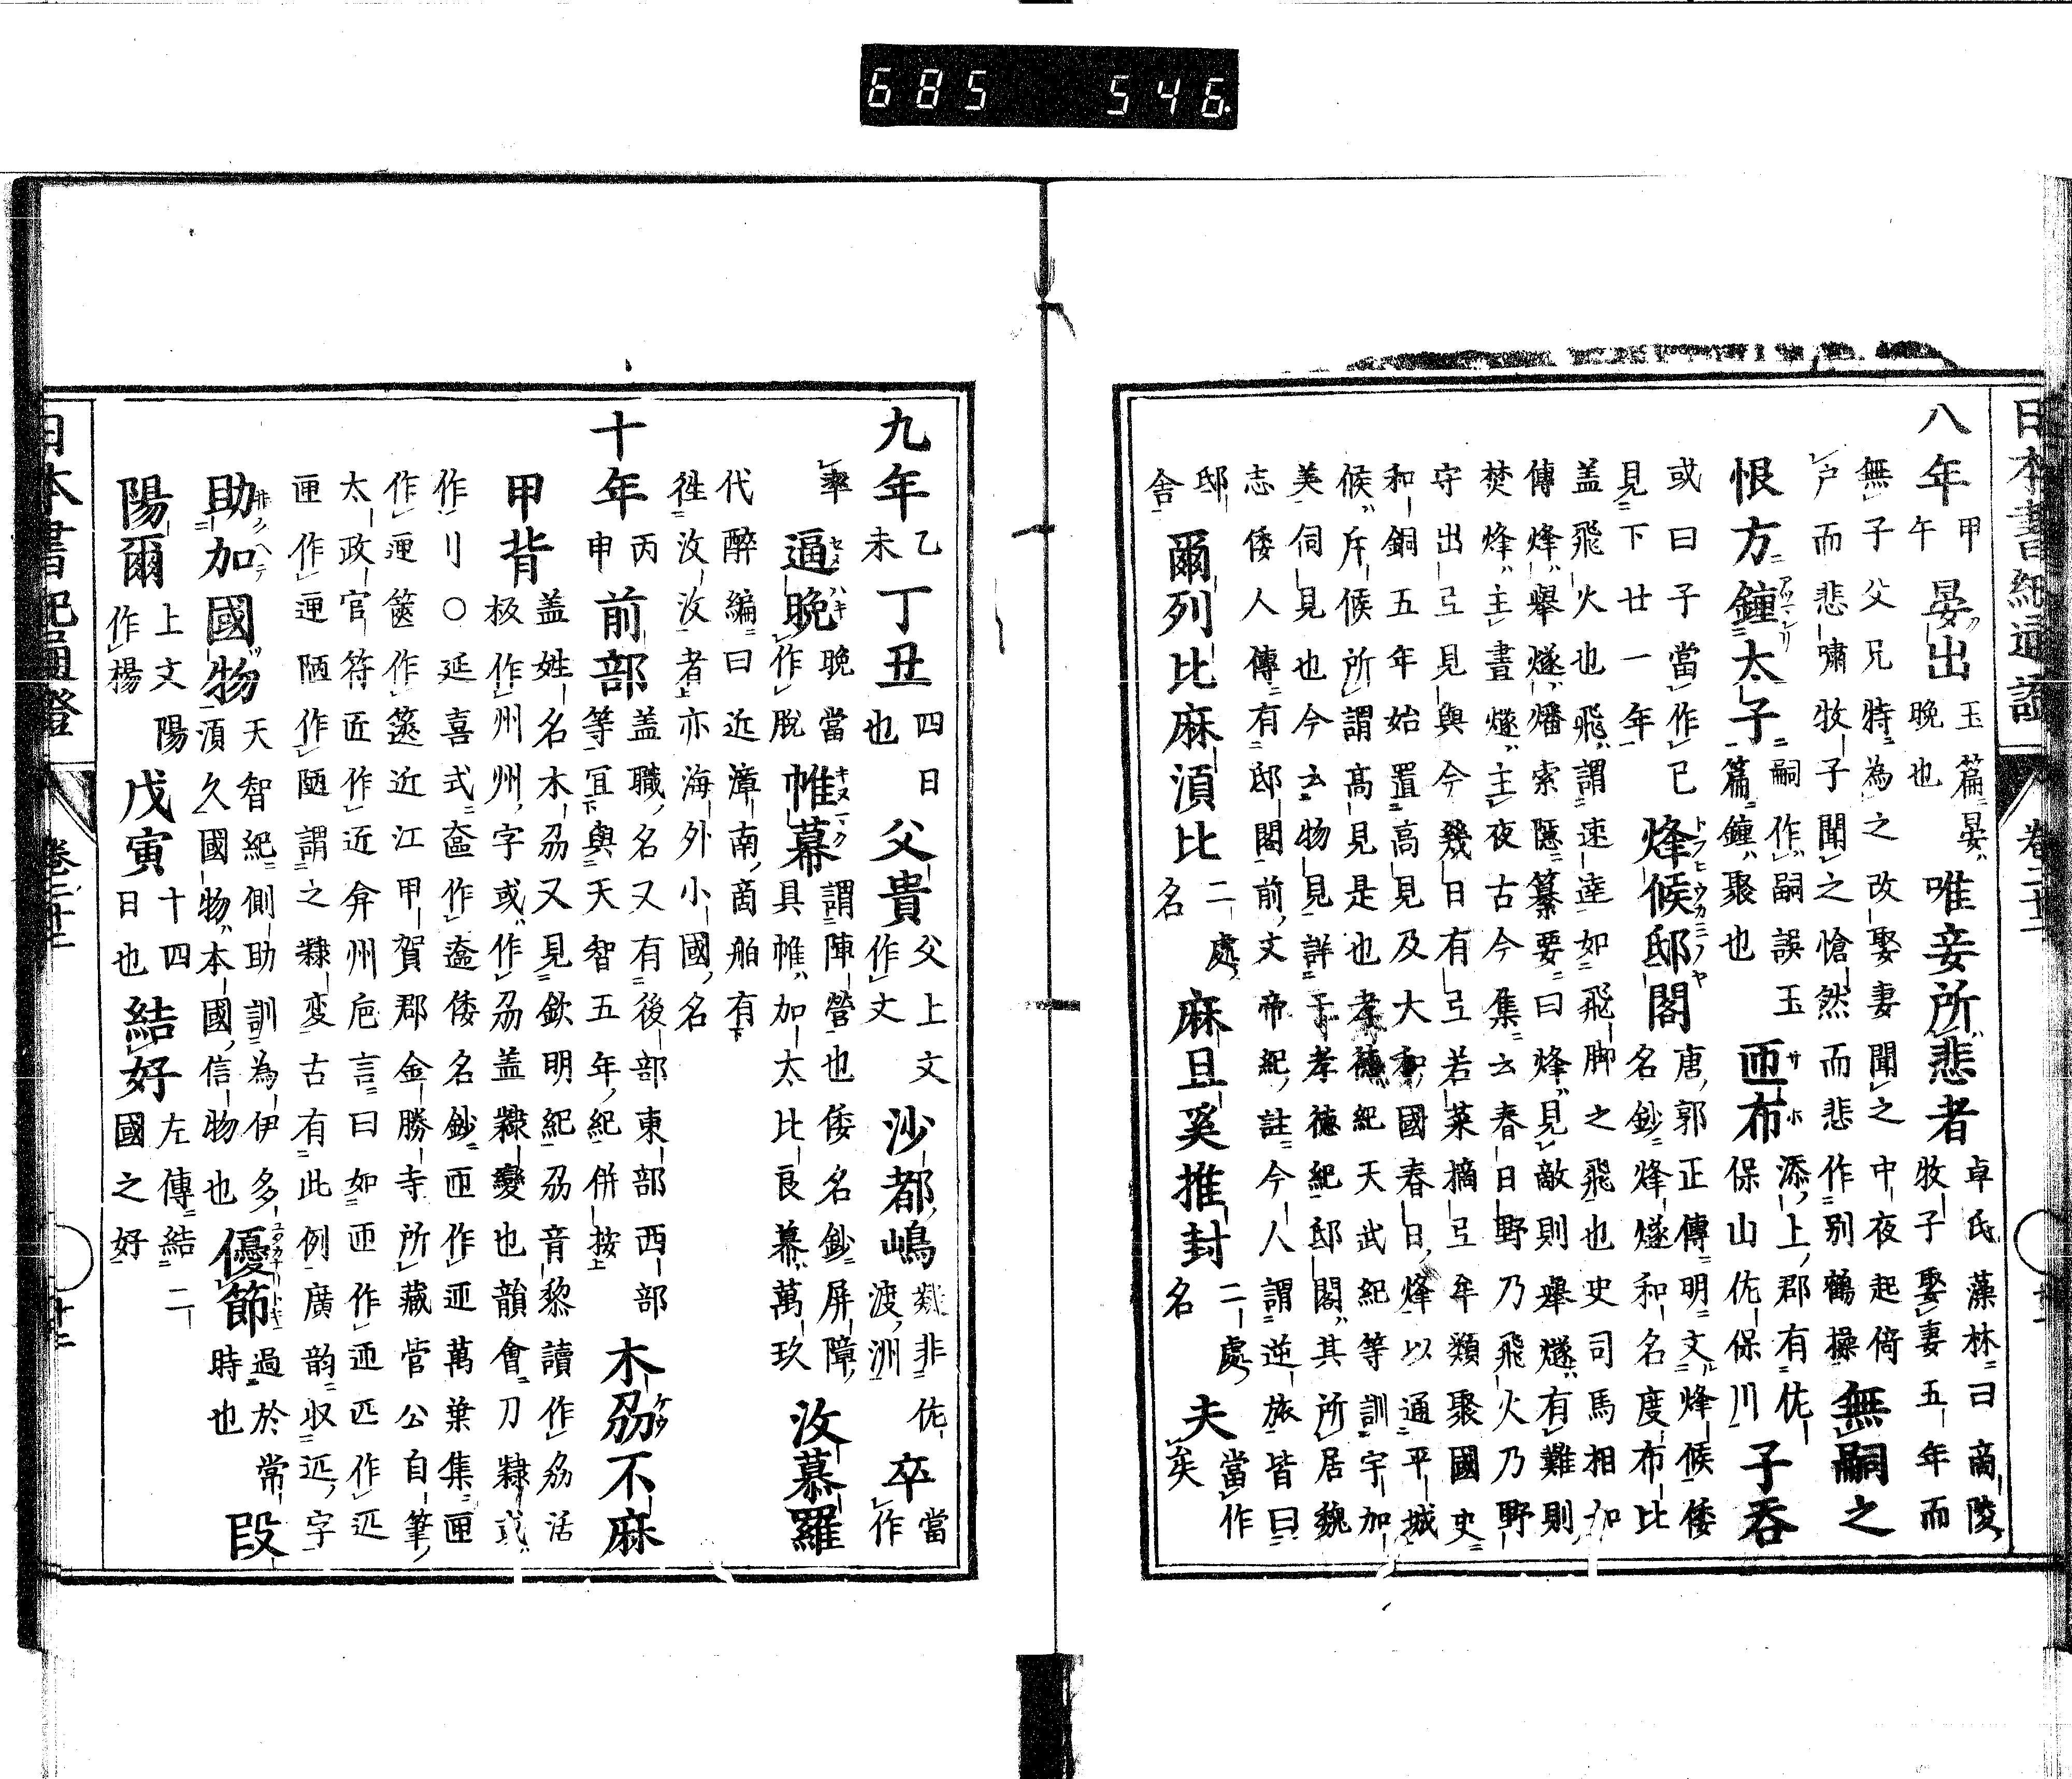 685 546
日本書紀通證 卷二十二
八年 甲午 晏出 玉篇晏晚也 唯妾所悲者 卓氏藻林曰商陵牧子娶妻五年而
無子父兄特為之改娶妻聞之中夜起倚
戶而悲嘯牧子聞之愴然而悲作別鶴操 無嗣之
恨方鍾太子 嗣作嗣誤玉篇鍾聚也 匝布 添上郡有佐保山佐保川 子吞
或曰子當作已
見下廿一年 烽候邸閣 唐郭正傳明文烽候倭名鈔烽燧和名度布比
盖飛火也飛謂速逹如飛脚之飛也史司馬相如
傳烽舉燧燔索隱纂要曰烽見敵則舉燧有難則
焚烽主晝燧主夜古今集云春日野乃飛火乃野
守出弖見與今幾日有弖若菜摘弖牟類聚國史
和銅五年始置高見及大和國春日烽以通平城
候斥候所謂高見是也孝德紀天武紀等訓宇加
美伺見也今云物見詳于孝德紀邸閣其所居魏
志倭人傳有邸閣前文帝紀註今人謂逆旅皆曰
邸舍 爾列比麻湏比 二處名 麻且奚推封 二處名 夫 當作矣
九年 乙未 丁丑 四日也 父貴 父上文作文 沙都嶋 渡洲非佐 卒 當作
率 逼晚 晚當作脫 帷幕 謂陣營也倭名鈔屏障具帷加太比良幕萬玖 汝慕羅
代醉編曰近漳南啇舶有
徃汝汝者亦海外小國名
十年 丙申 前部 盖職名又有後部東部西部等宜與天智五年紀併按 木刕不麻
甲背 盖姓名木刕又見欽明紀刕音黎讀作刕活板作州州字或作刕盖隸變也韻會刀隸或
作刂〇延喜式奩作匳倭名鈔匝作迊萬葉集匣
作匣篋作篋近江甲賀郡金勝寺所藏菅公自筆
太政官符匠作近弇州卮言曰如匝作迊匹作
匣作匣陋作陋謂之隸変古有此例廣韵収字
助加國物 天智紀側助訓為伊多湏久國物本國信物也 優節 過於常時也 段
陽爾 上文陽作楊 戊寅 十四日也 結好 左傳結二國之好
日本書紀通證 卷二十二 十二